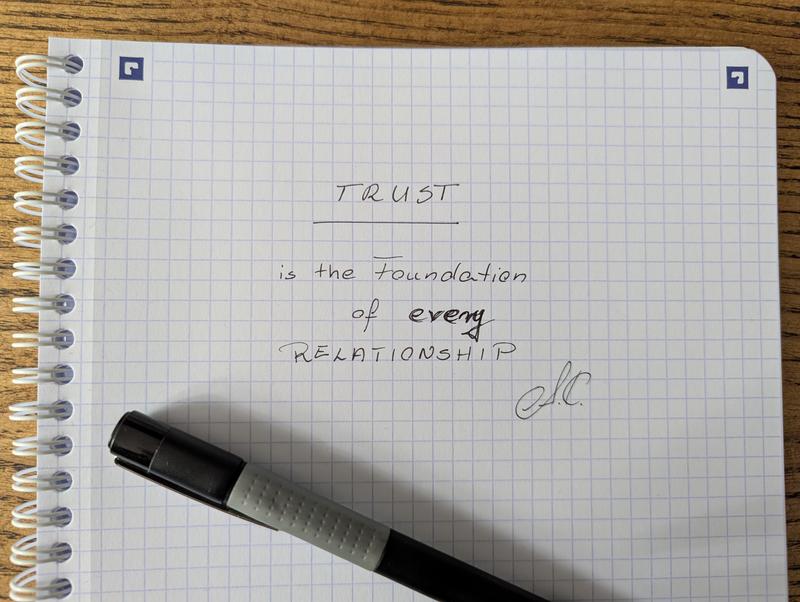 TRUST
is the Foundation
of every
RELATIONSHIP
S.C.